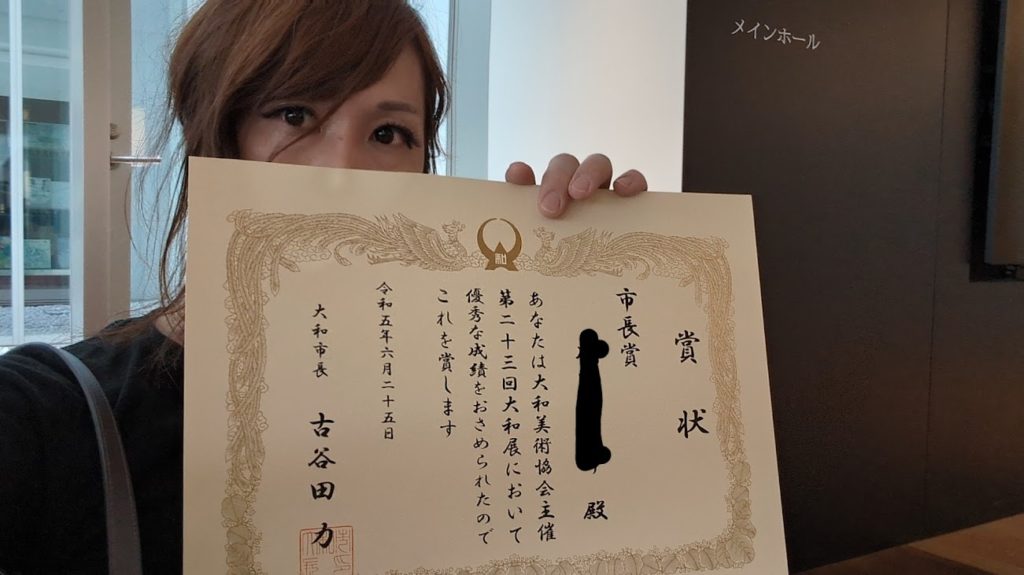 メインホール
賞状
市長賞
殿
あなたは大和美術協会主催
第二十三回大和展において
優秀な成績をおさめられたので
これを賞します
令和五年六月二十五日
大和市長 古谷田力